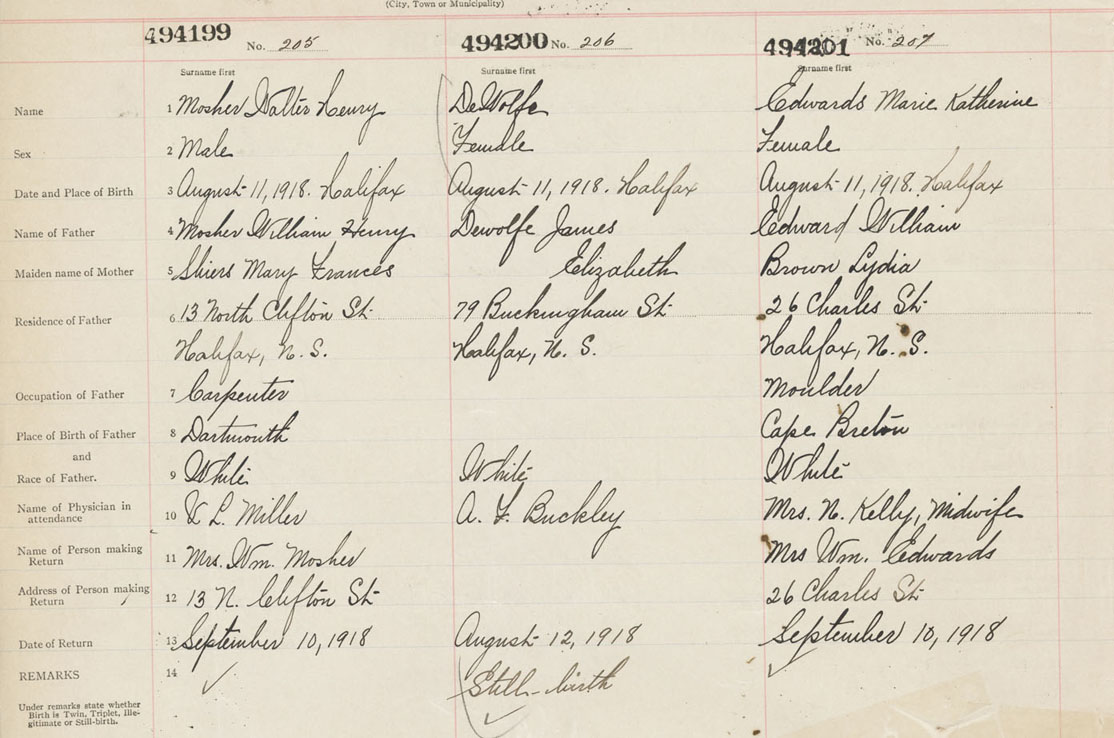 (City, Town or Municipality)
494199 No. 205 494200 No. 206 494201 No. 207
Surname first Surname first Surname first
Name 1 Mosher Walter Henry DeWolfe Edwards Marie Katherine
Sex 2 Male Female Female
Date and Place of Birth 3 August 11, 1918. Halifax August 11, 1918. Halifax August 11, 1918. Halifax
Name of Father 4 Mosher William Henry Dewolfe James Edward William
Maiden name of Mother 5 Shiers Mary Frances Elizabeth Brown Lydia
Residence of Father 6 13 North Clifton St 79 Buckingham St 26 Charles St
Halifax, N. S. Halifax, N. S. Halifax, N. S.
Occupation of Father 7 Carpenter Moulder
Place of Birth of Father 8 Dartmouth Cape Breton
and
Race of Father. 9 White White White
Name of Physician in
attendance 10 L. Miller A. F. Buckley Mrs. N. Kelly, Midwife
Name of Person making
Return 11 Mrs. Wm. Mosher Mrs Wm. Edwards
Address of Person making
Return 12 13 N. Clifton St 26 Charles St
Date of Return 13 September 10, 1918 August 12, 1918 September 10, 1918
REMARKS 14 Still-birth
Under remarks state whether
Birth is Twin, Triplet, Ille-
gitimate or Still-birth.